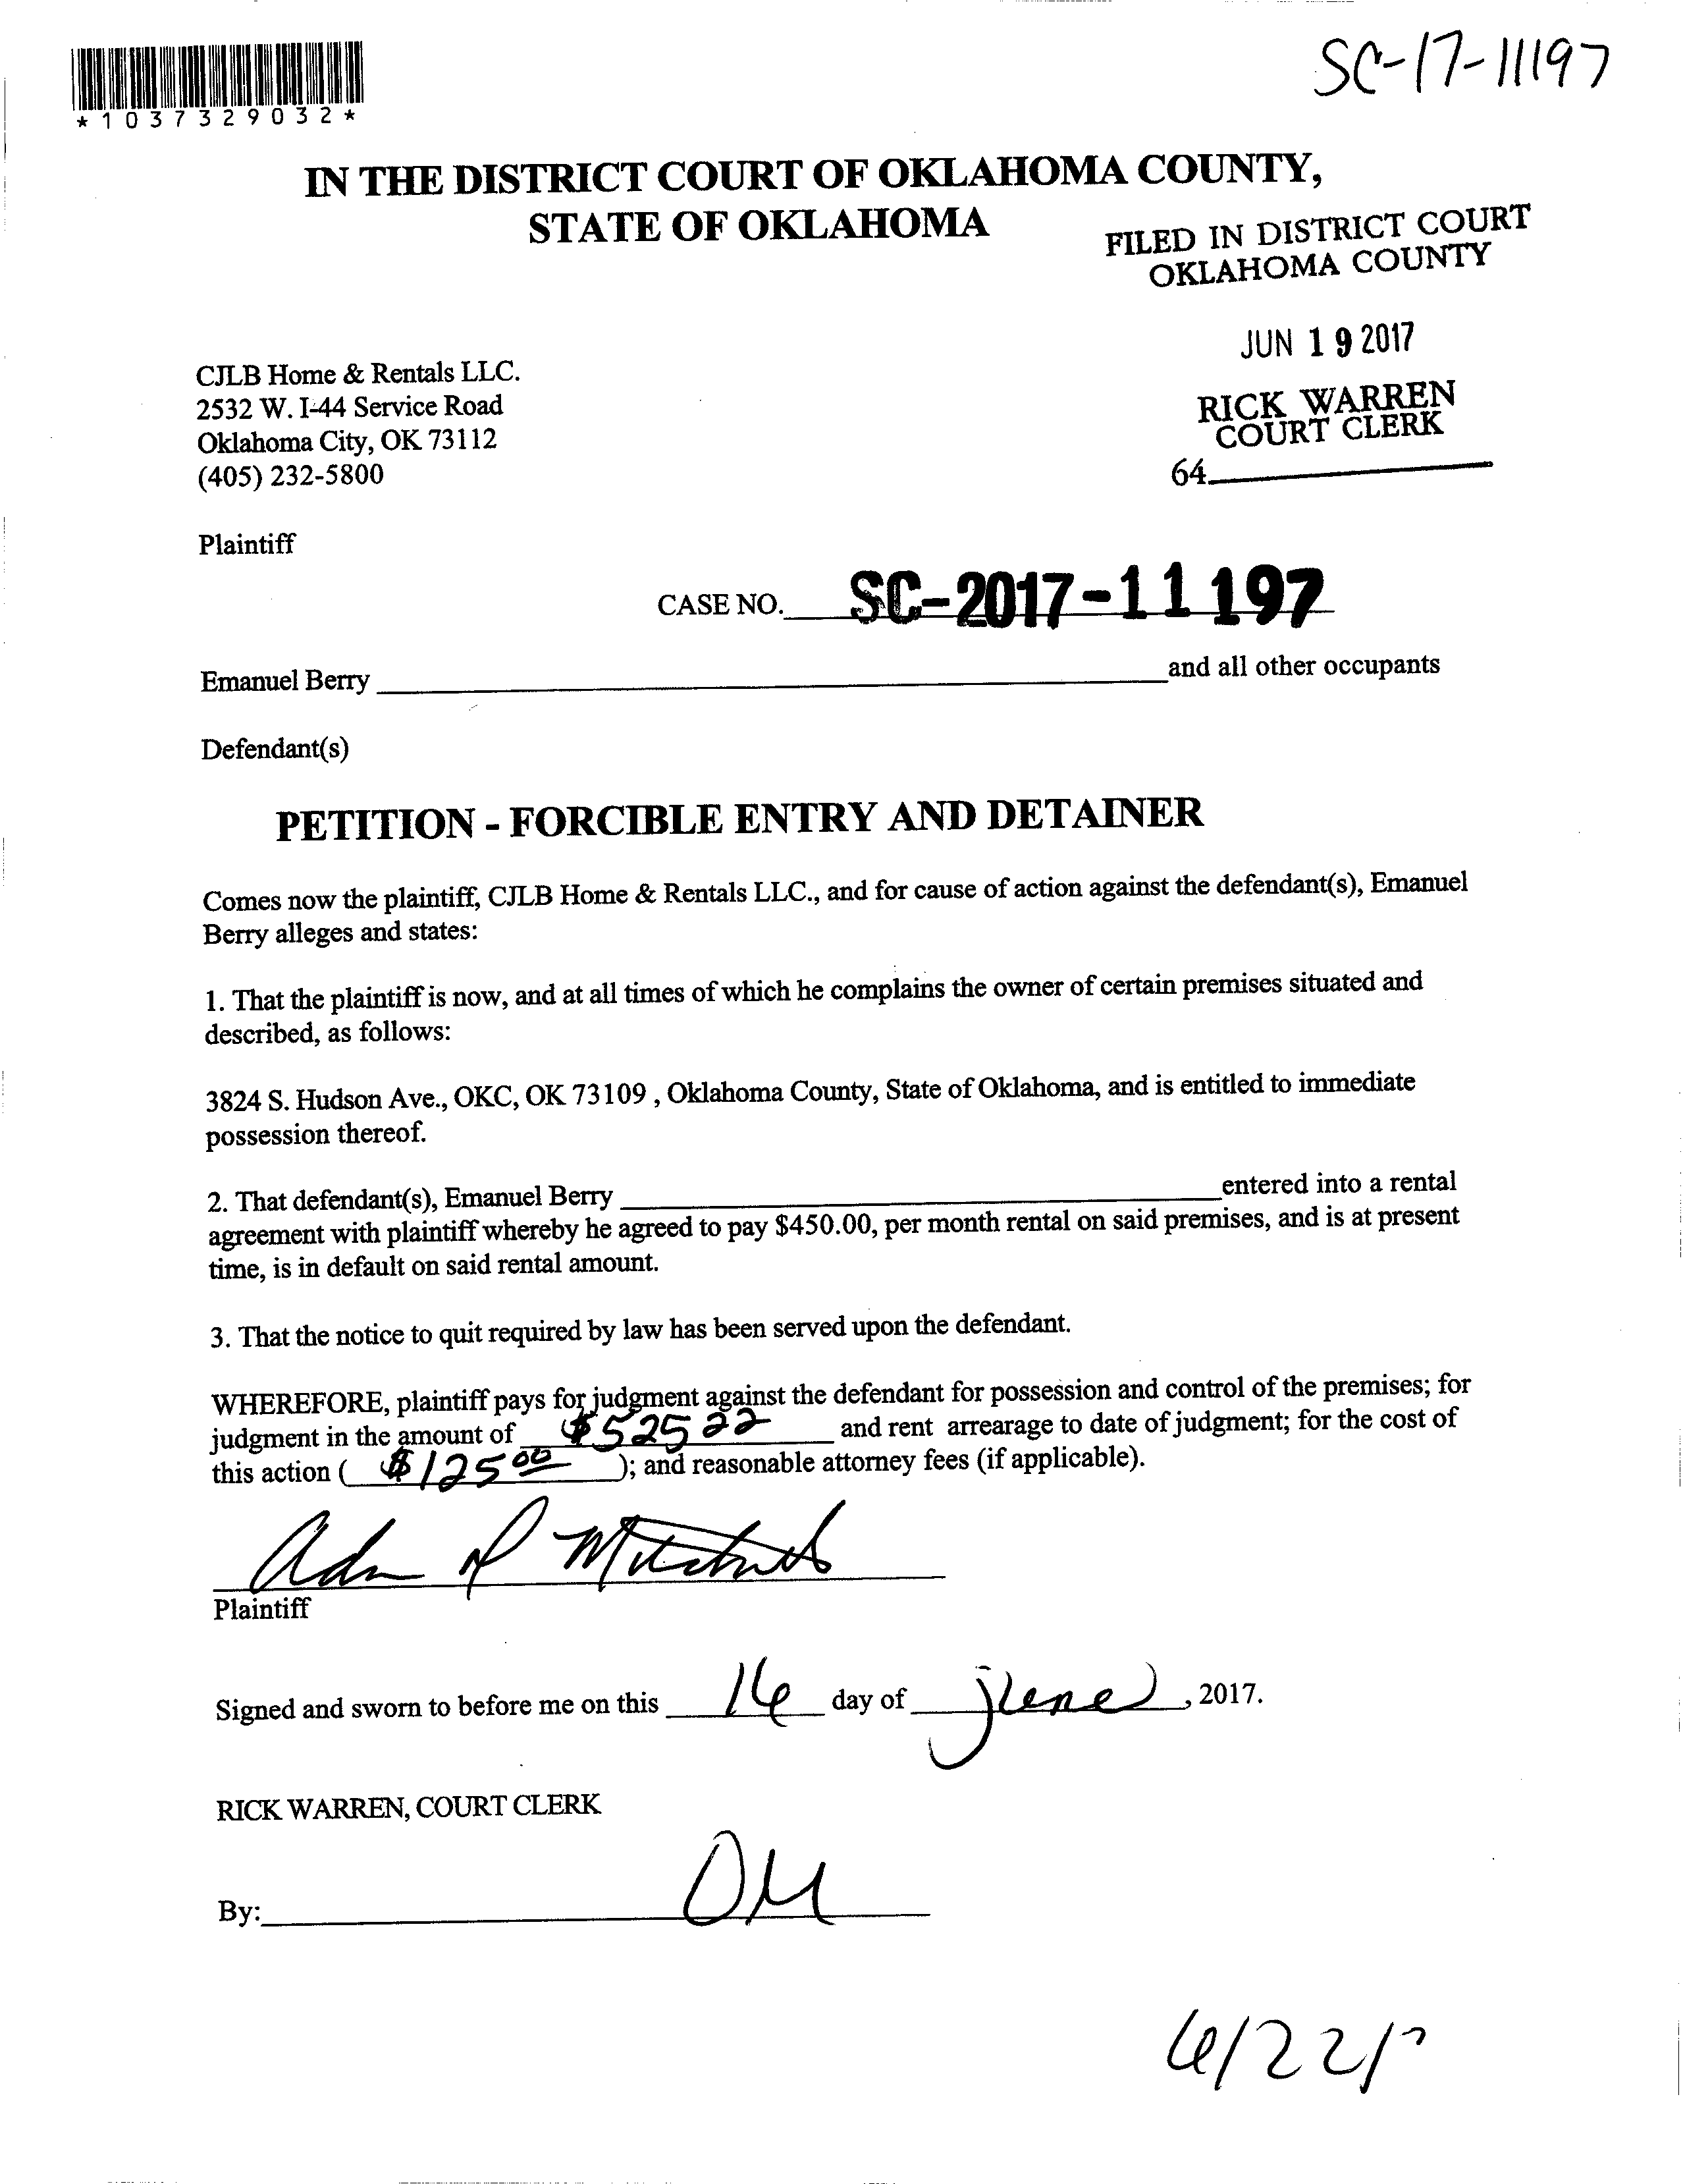 SC-17-11197
*1037329032*
IN THE DISTRICT COURT OF OKLAHOMA COUNTY,
STATE OF OKLAHOMA
FILED IN DISTRICT COURT
OKLAHOMA COUNTY
JUN 19 2017
RICK WARREN
COURT CLERK
64
CJLB Home & Rentals LLC.
2532 W. I-44 Service Road
Oklahoma City, OK 73112
(405) 232-5800
Plaintiff
CASE NO. SC-2017-11197
Emanuel Berry and all other occupants
Defendant(s)
PETITION - FORCIBLE ENTRY AND DETAINER
Comes now the plaintiff, CJLB Home & Rentals LLC., and for cause of action against the defendant(s), Emanuel
Berry alleges and states:
1. That the plaintiff is now, and at all times of which he complains the owner of certain premises situated and
described, as follows:
3824 S. Hudson Ave., OKC, OK 73109 , Oklahoma County, State of Oklahoma, and is entitled to immediate
possession thereof.
2. That defendant(s), Emanuel Berry entered into a rental
agreement with plaintiff whereby he agreed to pay $450.00, per month rental on said premises, and is at present
time, is in default on said rental amount.
3. That the notice to quit required by law has been served upon the defendant.
WHEREFORE, plaintiff pays for judgment against the defendant for possession and control of the premises; for
judgment in the amount of $525 22 and rent arrearage to date of judgment; for the cost of
this action ( $125 00 ); and reasonable attorney fees (if applicable).
Plaintiff
Signed and sworn to before me on this 16 day of june , 2017.
RICK WARREN, COURT CLERK
By: DM